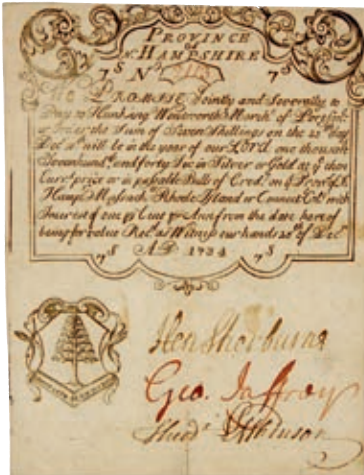 PROVINCE
OF
N. HAMPSHIRE
7S No 7S
We PROMISE Jointly and Severally to
Pay to Hunking Wentworth March of Portsmo
or Order the Sum of Seven Shillings on the 25th Day
Decr wch will be in the year of our LORD one thousand
Sevenhundd and forty Six in Silver or Gold at ye then
Currt price or in passable Bills of Credt on ye Provce of N
Hampe Massach Rhode Island or Connect Col with
Interest of one pr Cent pr Ann from the date hereof
being for value Recd as Witness our hands 25th of Decr
7S AD 1734 7S
Hen Sherburne
Geo. Jaffrey
Theodr Atkinson